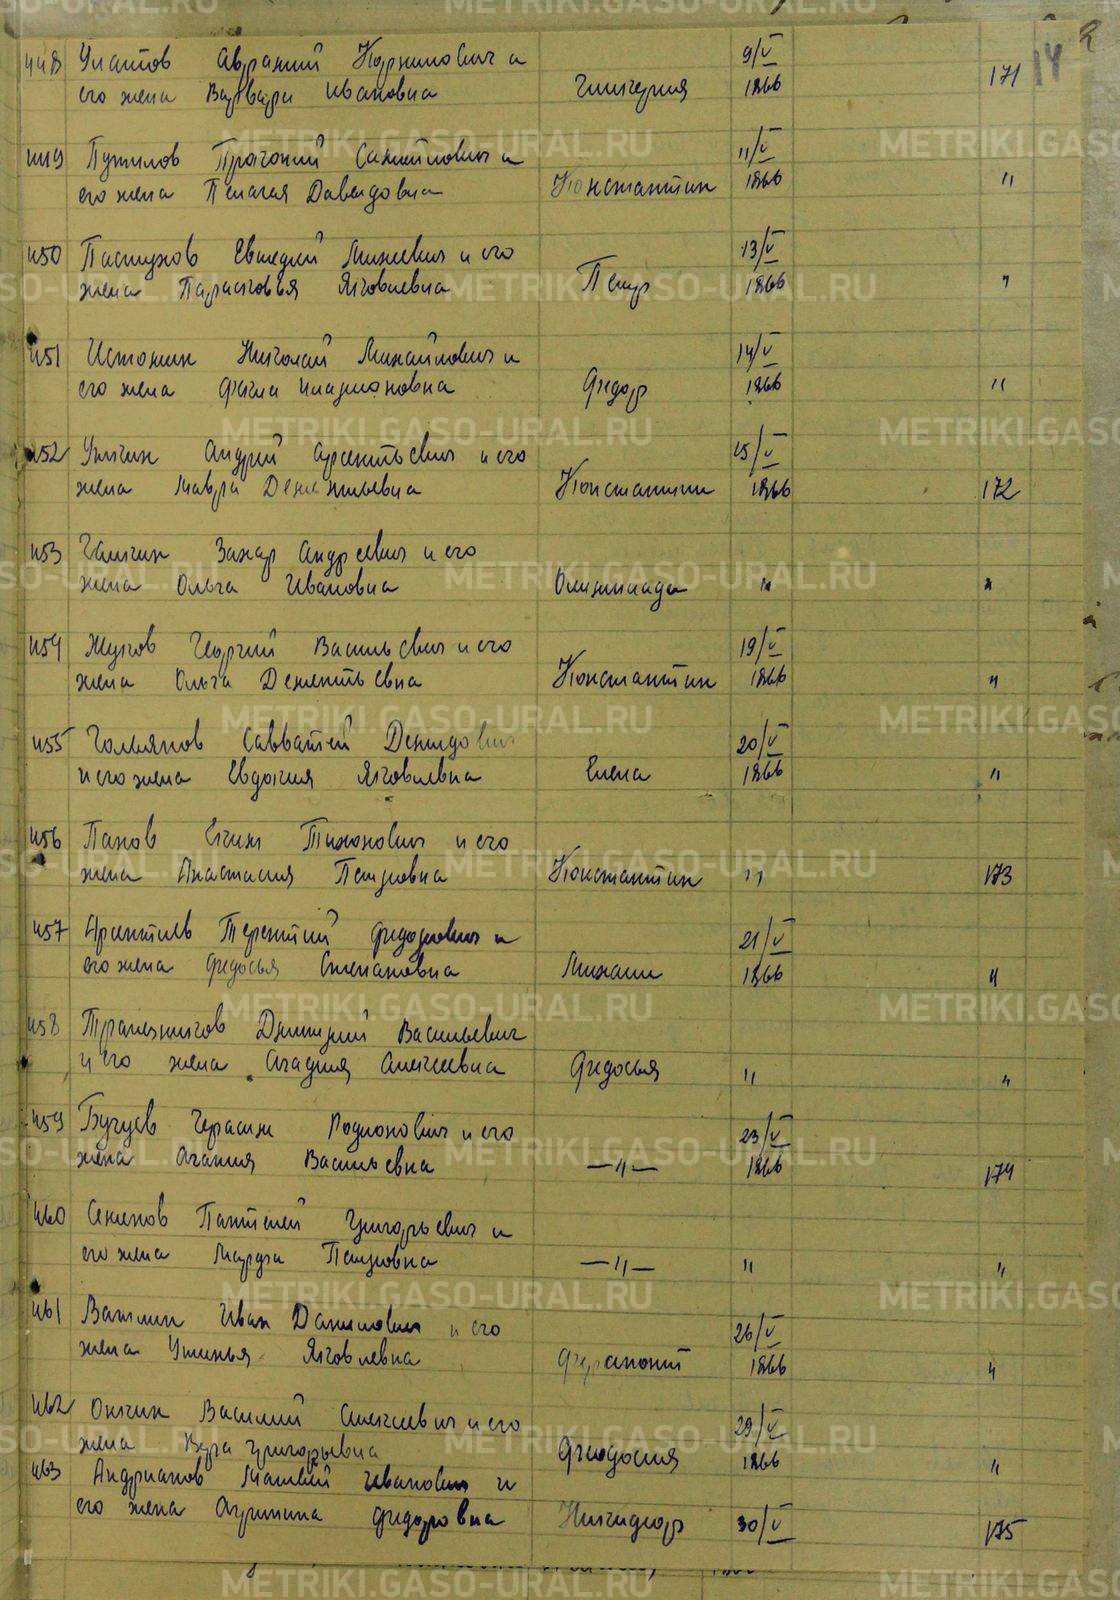 14
448 Упатов Авраний Корнилович и 9/V
его жена Варвара Ивановна Гликерия 1866 171
449 Путилов Прокопий Самойлович и 11/V
его жена Пелагея Давыдовна Константин 1866 "
450 Пастухов Евгений Михеевич и его 13/V
жена Парасковья Яковлевна Петр 1866 "
451 Истомин Николай Михайлович и 14/V
его жена Фёкла Илларионовна Федор 1866 "
452 Андрей Арсентьевич и его 15/V
жена Мавра Дементьевна Константин 1866 172
453 Галкин Захар Андреевич и его
жена Ольга Ивановна Олимпиада " "
454 Жуков Георгий Васильевич и его 19/V
жена Ольга Дементьевна Константин 1866 "
455 Гольянов Савватей Демидович 20/V
и его жена Евдокия Яковлевна Елена 1866 "
456 Панов Еким Тихонович и его
жена Анастасия Петровна Константин " 173
457 Арентьев Терентий Федорович и 21/V
его жена Федосья Степановна Михаил 1866 "
458 Трапезников Дмитрий Васильевич
и его жена Агафия Алексеевна Федосья " "
459 Бугуев Герасим Родионович и его 23/V
жена Агапия Васильевна —"— 1866 174
460 Семенов Пантелей Григорьевич и
его жена Марфа Петровна —"— " "
461 Важлин Иван Данилович и его 26/V
жена Устинья Яковлевна Ферапонт 1866 "
462 Окскин Василий Алексеевич и его 29/V
жена Вера Григорьевна Феодосия 1866 "
463 Андрианов Матвей Иванович и
его жена Агрипина Федоровна Никифор 30/V 175